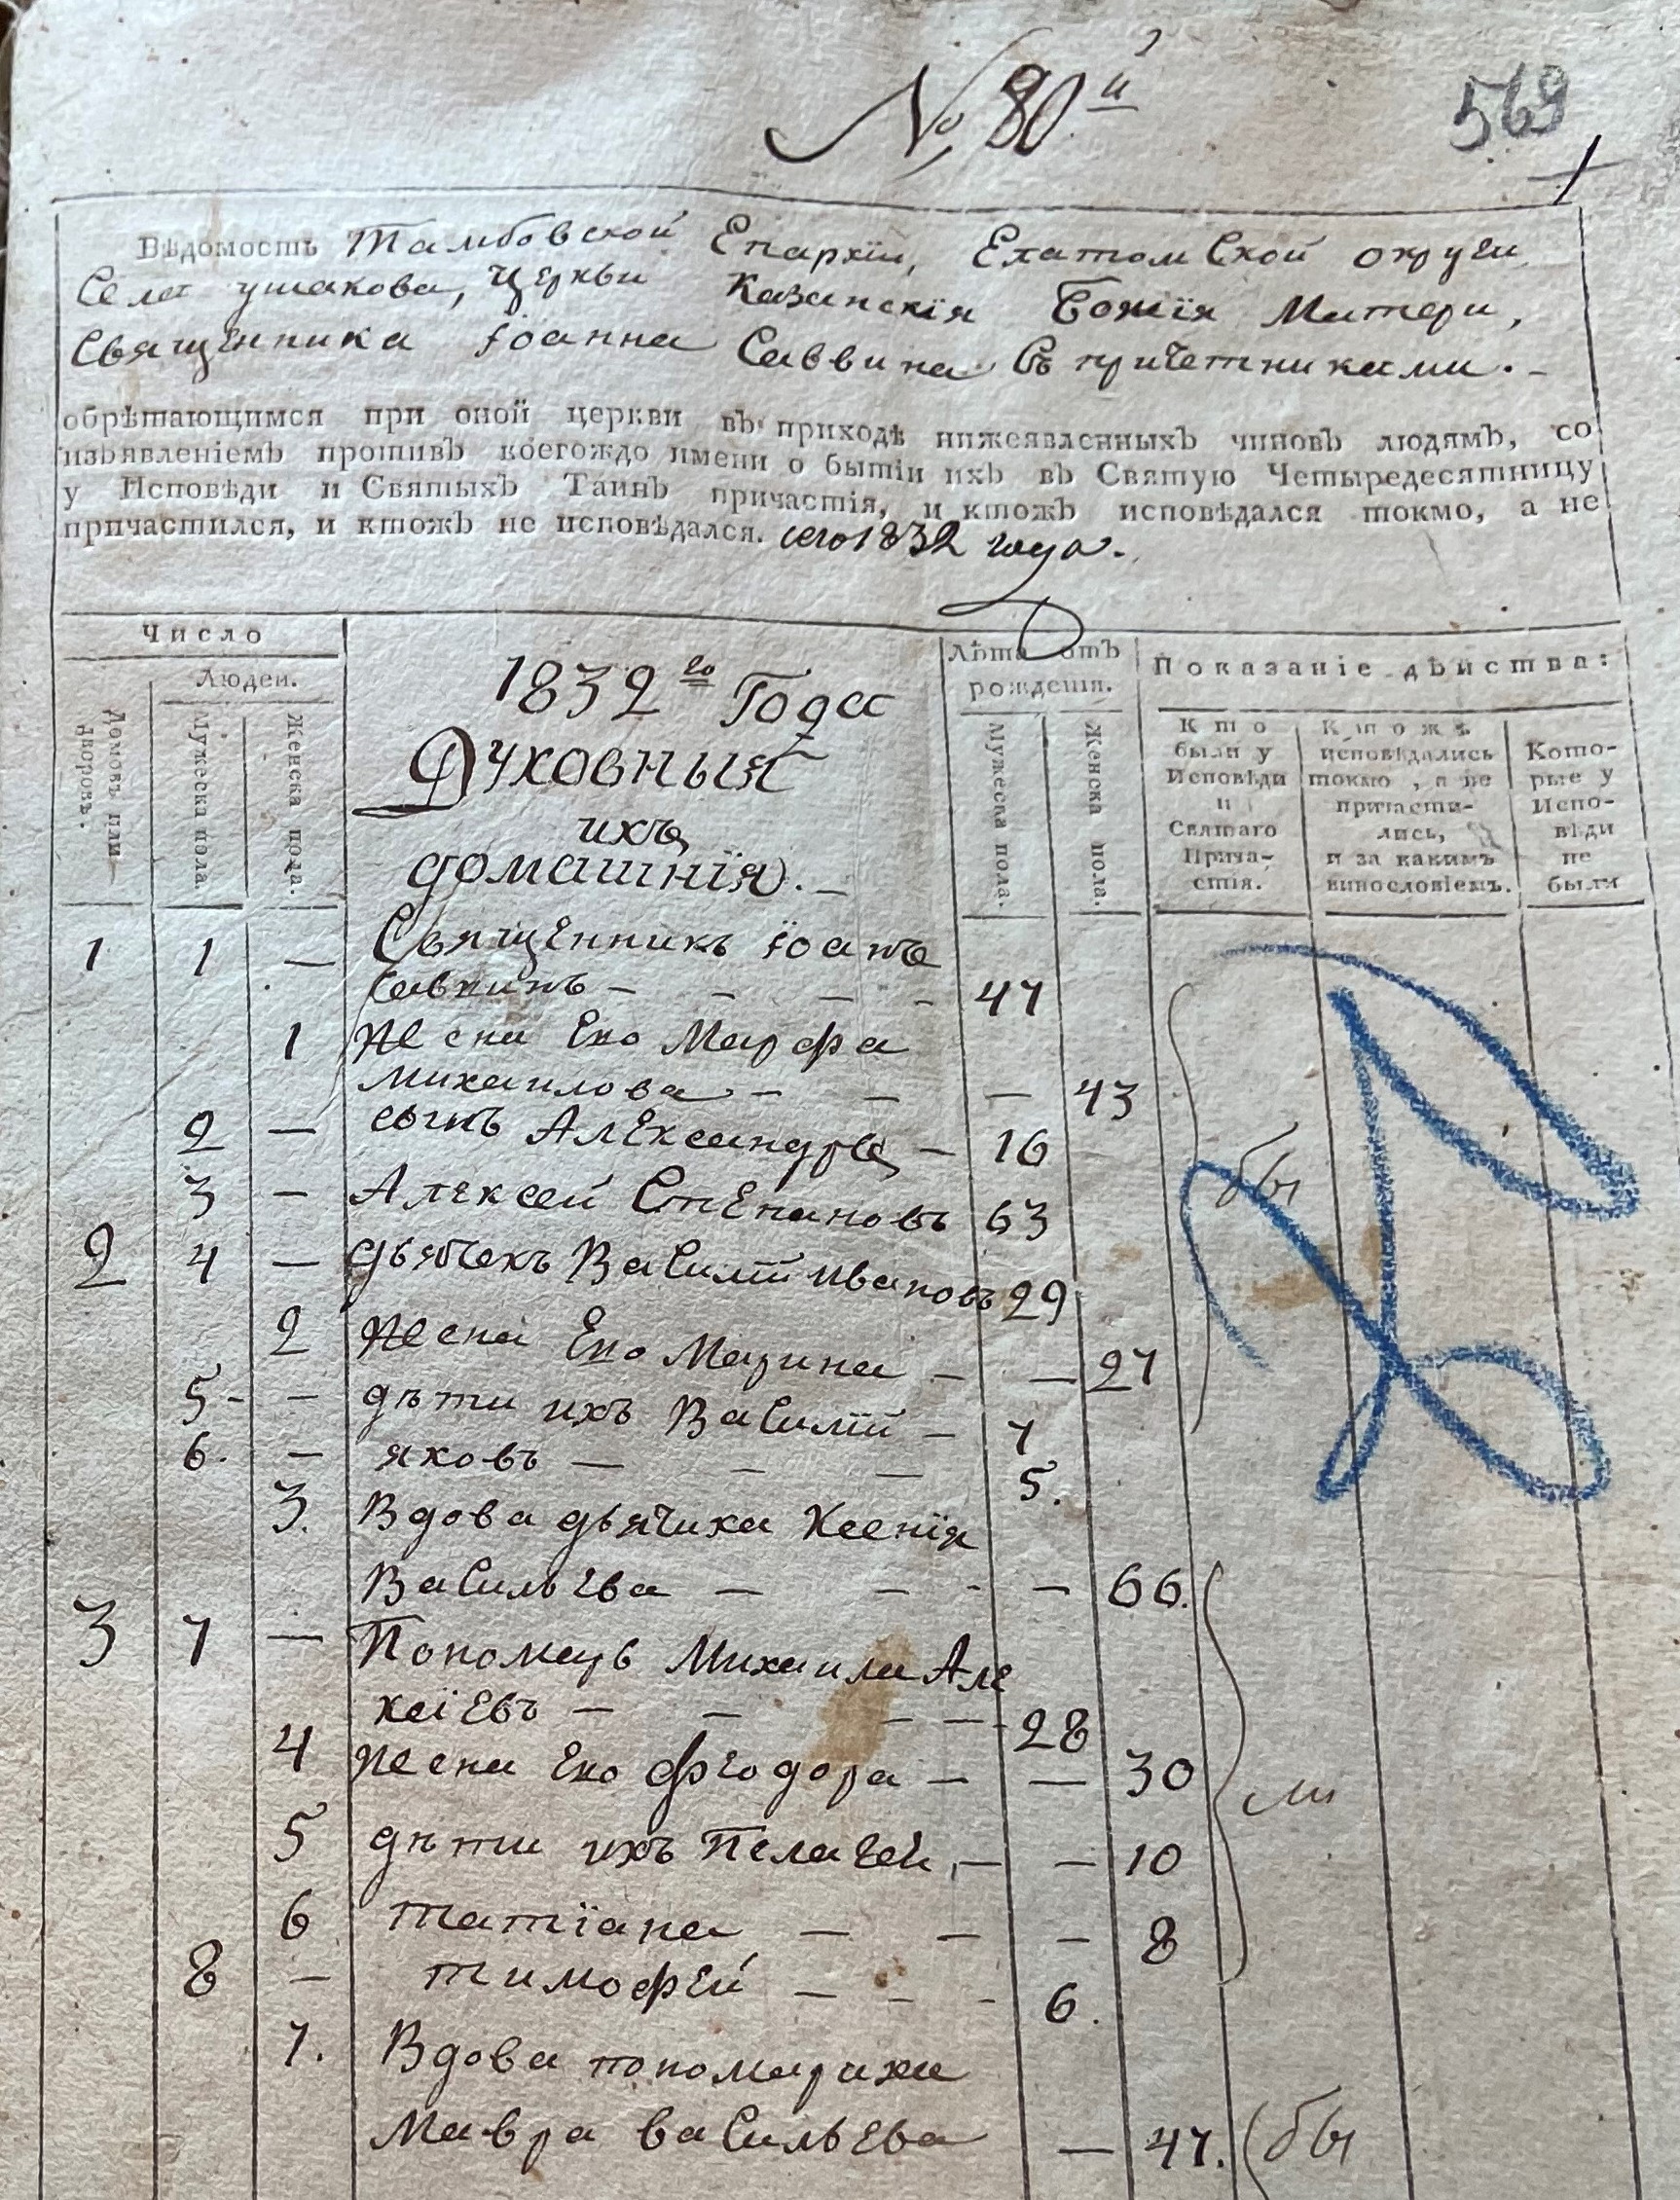 № 80й
569
1
Вѣдомость Тамбовской Епархїи, Елатомской округи
Села ушакова, Церкви Казанскїя Божїя Матери,
Священника Iоанна Саввина съ причетниками. -
обрѣтающимся при оной церкви въ приходѣ нижеявленныхъ чиновъ людямъ, со
изъявленіемъ противъ коегождо имени о бытіи ихъ въ Святую Четыредесятницу
у Исповѣди и Святыхъ Таинъ причастія, и ктожъ исповѣдался токмо, а не
причастился, и ктожъ не исповѣдался. сего 1832 года.
Число
Людей.
Домовъ или дворовъ.
Мужеска пола.
Женска пола.
1832го Года
Духовныя
ихъ
домашнїя. -
Лѣта отъ
рожденія.
Мужеска пола.
Женска пола.
Показаніе дѣйства:
Кто
были у
Исповѣди
и
Святаго
Прича-
стія.
Ктожъ
исповѣдались
токмо, а не
причасти-
лись,
и за какимъ
винословіемъ.
Кото-
рые у
Испо-
вѣди
не
были
1 1 — Священникъ Iоаннъ
Саввинъ - - - - 47
1 Жена Его Марфа
михаилова - - — 43
2 — сынъ Александръ - 16
3 — Алексей Степановъ 63
бы
2 4 — дьячекъ Василїй ивановъ 29
2 Жена Его Марина - — 27
5 - - дѣти ихъ Василїй - 7
6. - яковъ — - — 5.
3. Вдова дьячиха Ксенїя
Васильева — - - — 66.
3 7 — Пономарь Михаила Але
ксїевъ — - - — 28
4 Жена Его Феодора — — 30
ли
5 дѣти ихъ Пелагея, — — 10
6 татїана — — — 8
8 — тимофей — - - 6.
7. Вдова пономариха
Мавра васильева — 47. бы